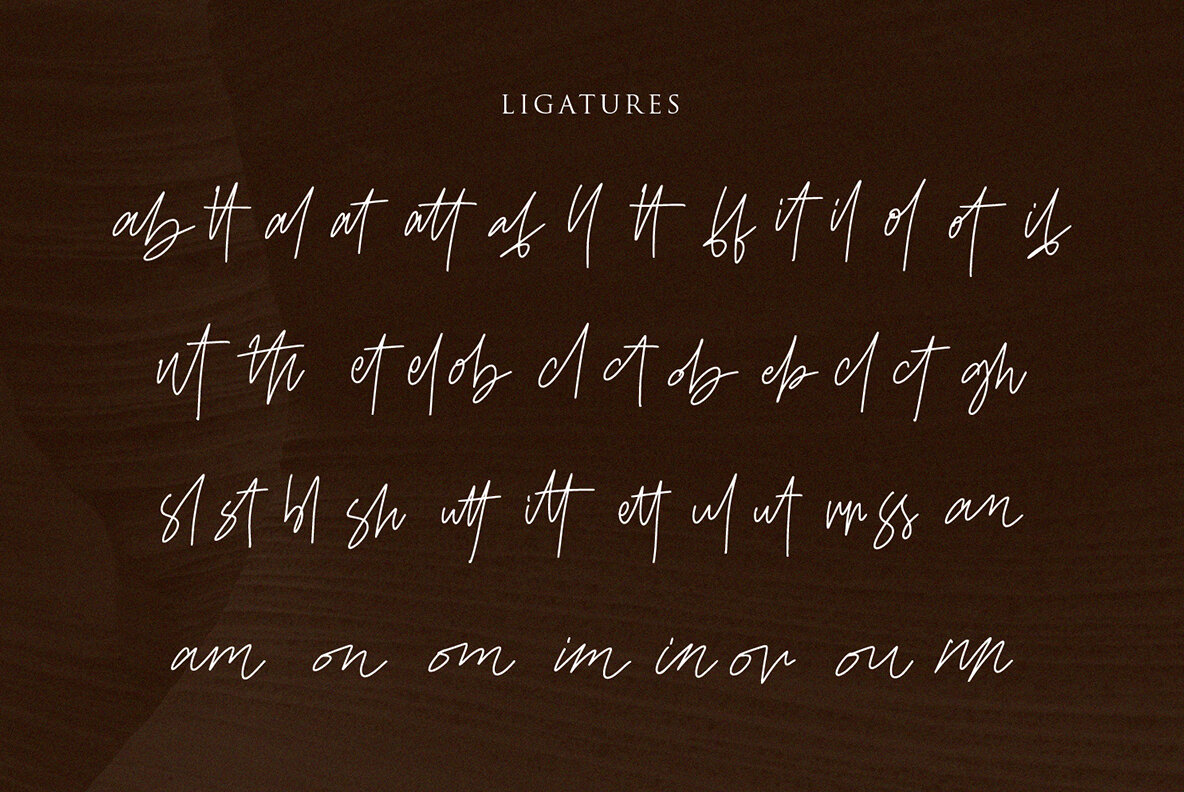 LIGATURES
ab tt al at att af ll tt ff it il ol ot if
nt th et el ob cl ct ob eb cl ct gh
sl st bl sh utt itt ett ul ut rr ss an
am on om im in or ou nn